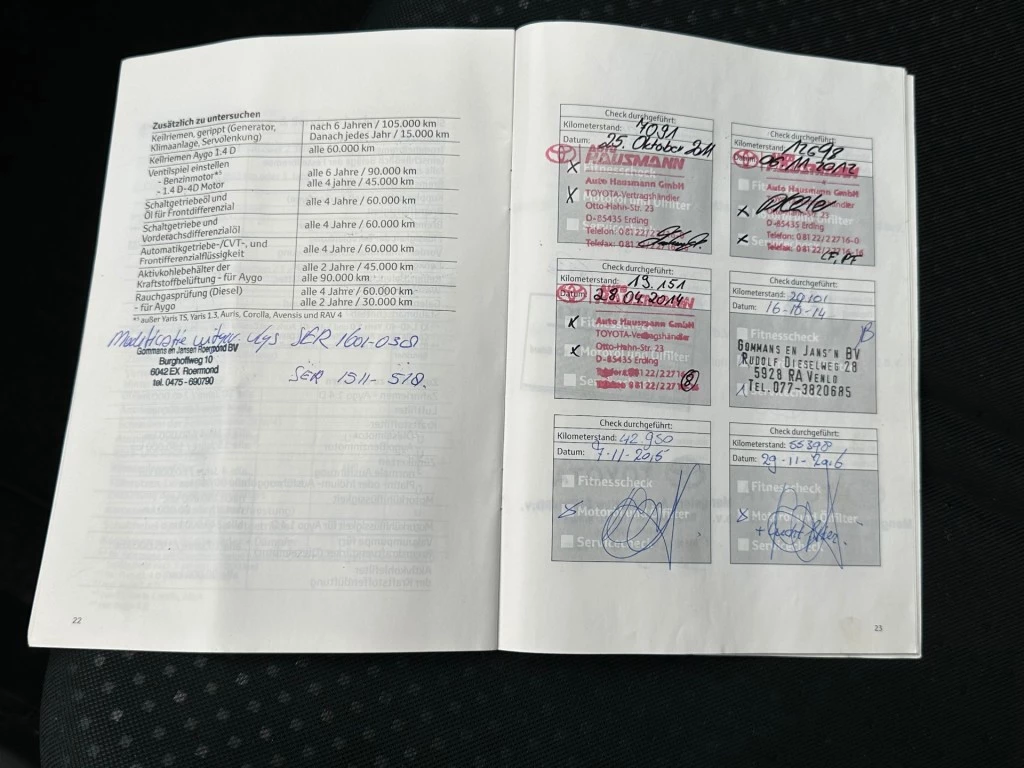 Zusätzlich zu untersuchen
Keilriemen, gerippt (Generator, Klimaanlage, Servolenkung) nach 6 Jahren / 105.000 km Danach jedes Jahr / 15.000 km
Keilriemen Aygo 1.4 D alle 60.000 km
Ventilspiel einstellen
- Benzinmotor*¹ alle 6 Jahre / 90.000 km
- 1.4 D-4D Motor alle 4 Jahre / 45.000 km
Schaltgetriebeöl und
Öl für Frontdifferenzial alle 4 Jahre / 60.000 km
Schaltgetriebe und
Vorderachsdifferenzialöl alle 4 Jahre / 60.000 km
Automatikgetriebe-/CVT-, und
Frontifferenzialflüssigkeit alle 4 Jahre / 60.000 km
Aktivkohlebehälter der
Kraftstoffbelüftung - für Aygo alle 2 Jahre / 45.000 km alle 90.000 km
Rauchgasprüfung (Diesel) alle 4 Jahre / 60.000 km
- für Aygo alle 2 Jahre / 30.000 km
*¹ außer Yaris TS, Yaris 1.3, Auris, Corolla, Avensis und RAV 4
SER 1601-0368
Gommans en Jansen Roermond BV
Burghoffweg 10
6042 EX Roermond
tel. 0475-690790
SER 1511-518.
22
Check durchgeführt:
Kilometerstand: 7091
25. Oktober 2011
AUTO HAUSMANN
Fitnesscheck
Auto Hausmann GmbH
TOYOTA-Vertragshändler
Otto-Hahn-Str. 23
D-85435 Erding
Telefon: 0 81 22/
Telefax: 0 81 22/
Check durchgeführt:
Kilometerstand: 12698
Datum: 06.11.2012
Auto Hausmann GmbH
TOYOTA-Vertragshändler
Otto-Hahn-Str. 23
D-85435 Erding
Telefon: 0 81 22/2 27 16-0
Telefax: 0 81 22/2 27 16-16
Check durchgeführt:
Kilometerstand: 19.151
Datum: 28.04.2014
Auto Hausmann GmbH
TOYOTA-Vertragshändler
Otto-Hahn-Str. 23
D-85435 Erding
8
Check durchgeführt:
Kilometerstand: 29101
Datum: 16-10-14
Fitnesscheck
GOMMANS EN JANS'N BV
RUDOLF DIESELWEG 28
5928 RA VENLO
TEL. 077-3820685
Check durchgeführt:
Kilometerstand: 42950
Datum: 7-11-2015
Fitnesscheck
Motoröl und Ölfilter
Servicecheck
Check durchgeführt:
Kilometerstand: 55398
Datum: 29-11-2016
Fitnesscheck
Motoröl und Ölfilter
Servicecheck
23